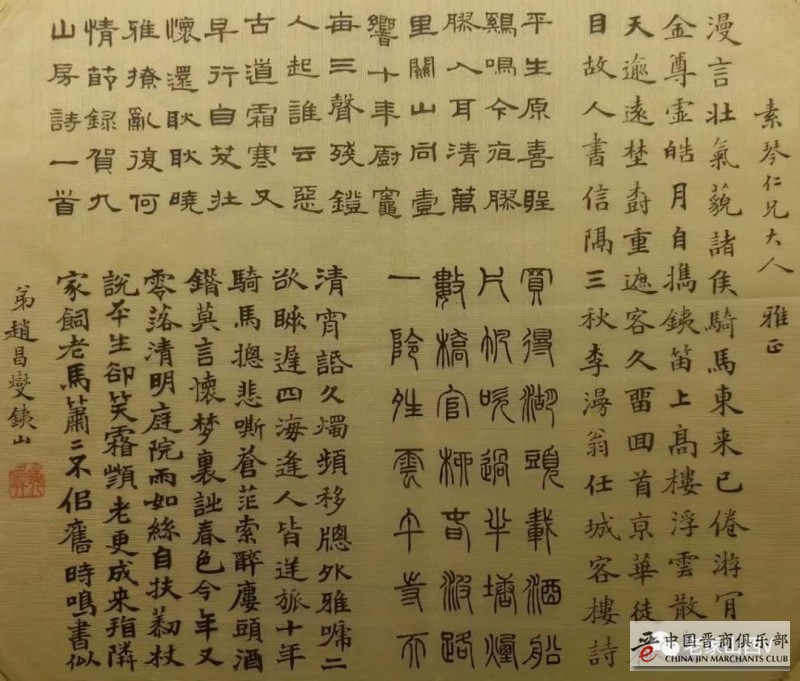 素琴仁兄大人 雅正
漫言壯氣藐諸侯騎馬東来已倦游肎
金尊虚皓月自攜鉄笛上高樓浮雲散
天逾遠埜樹重遮客久畱回首京華徒
目故人書信隔三秋李漫翁任城客樓詩
平生原喜聽
鷄鳴今夜膠
膠入耳清萬
里關山同壹
響十年廚竈
每三聲殘鐙
人起誰云惡
古道霜寒又
早行自笑壯
懷還耿耿曉
雅撩亂復何
情節録賀九
山房詩一首
買得湖頭載酒船
片帆吹過半塘煙
數橋官柳春波路
一雲午寺
清宵話久燭頻移牕外雅嗁二
欲睡遲四海逢人皆逆旅十年
騎馬揔悲嘶蒼茫索醉廔頭酒
鍇莫言懷梦裏詩春色今年又
零落清明庭院雨如絲自扶藜杖
説平生卻笑霜顛老更成来指隣
家飼老馬簫二不佀舊時鳴書似
弟趙昌燮鉄山
中国晋商俱乐部
CHINA JIN MARCHANTS CLUB